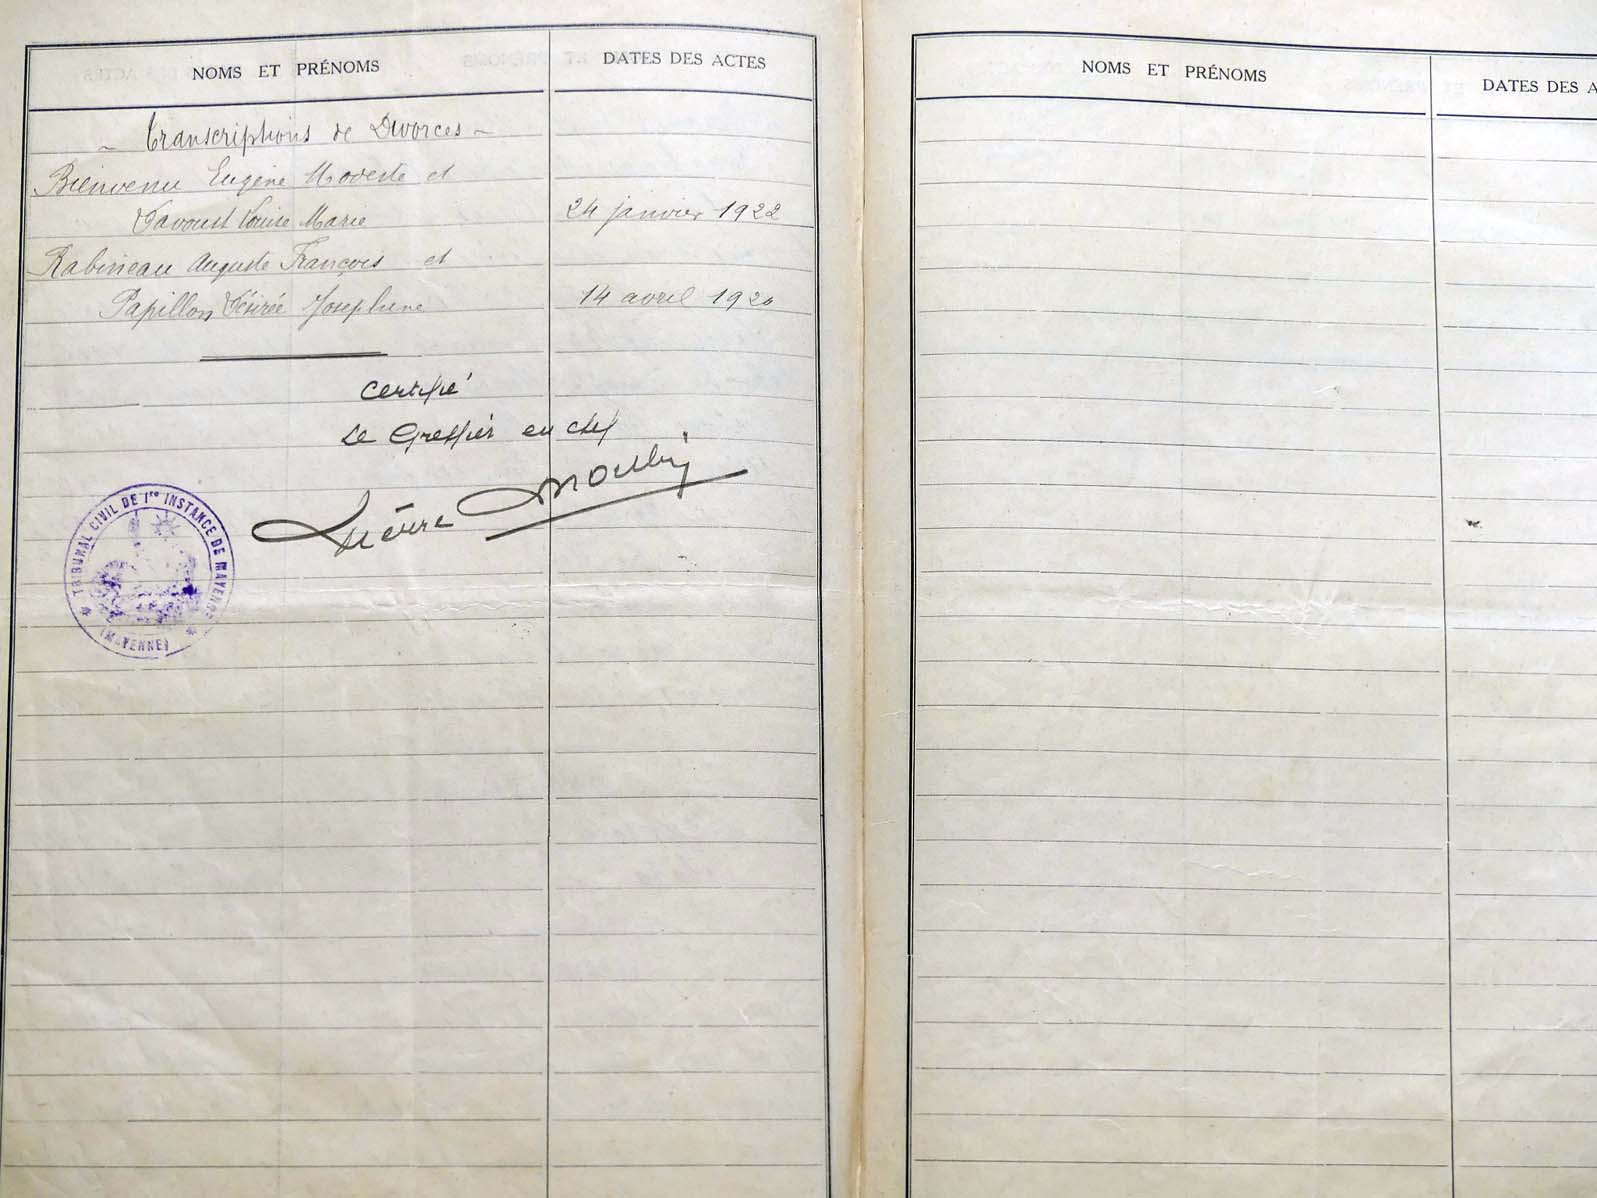 NOMS ET PRÉNOMS
DATES DES ACTES
~ Transcriptions de Divorces ~
Bienvenu Eugène Modeste et
Favoust Louise Marie 24 janvier 1922
Rabineau Auguste François et
Papillon Désirée Josephine 14 avril 1920
Certifié
Le Greffier en chef
TRIBUNAL CIVIL DE 1re INSTANCE DE MAYENNE
(MAYENNE)
NOMS ET PRÉNOMS
DATES DES A